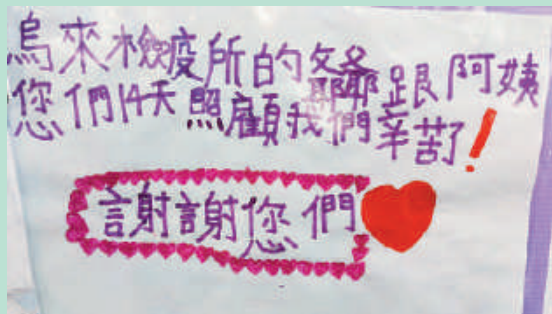 烏來檢疫所的爺爺跟阿姨
您們14天照顧我們辛苦了!
謝謝您們